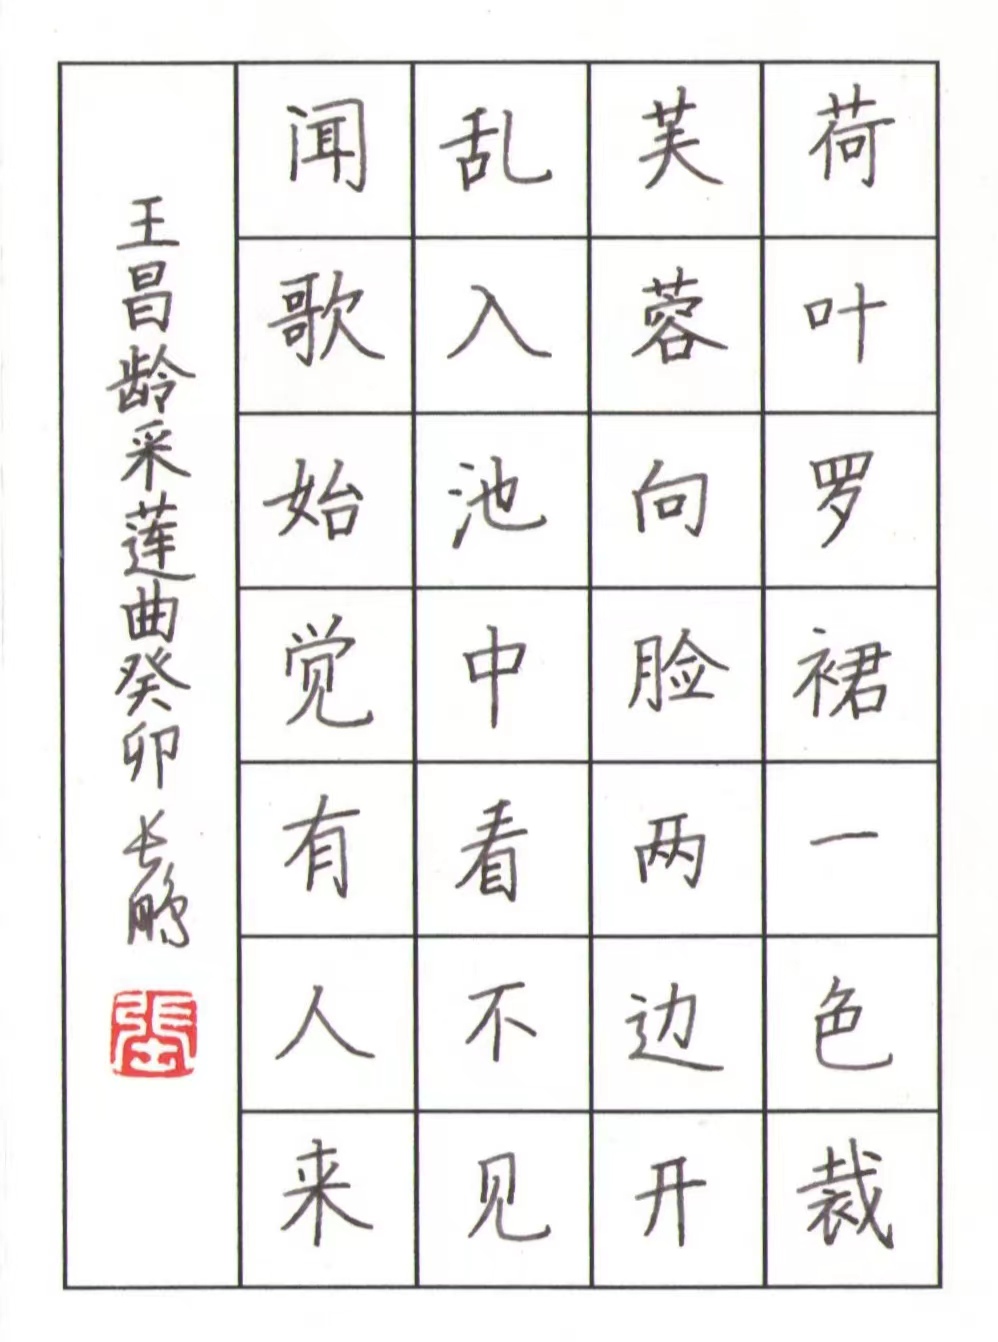 荷叶罗裙一色裁
芙蓉向脸两边开
乱入池中看不见
闻歌始觉有人来
王昌龄采莲曲癸卯长鹏